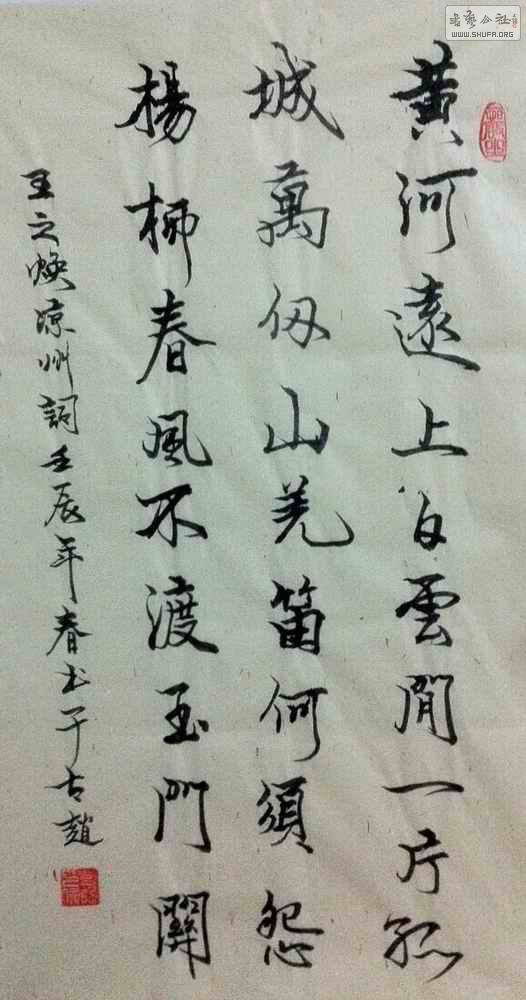 黃河遠上白雲閒一片孤
城萬仞山羌笛何須怨
楊柳春風不渡玉門關
王之煥凉州詞壬辰年春书于古趙
书艺公社
WWW.SHUFA.ORG